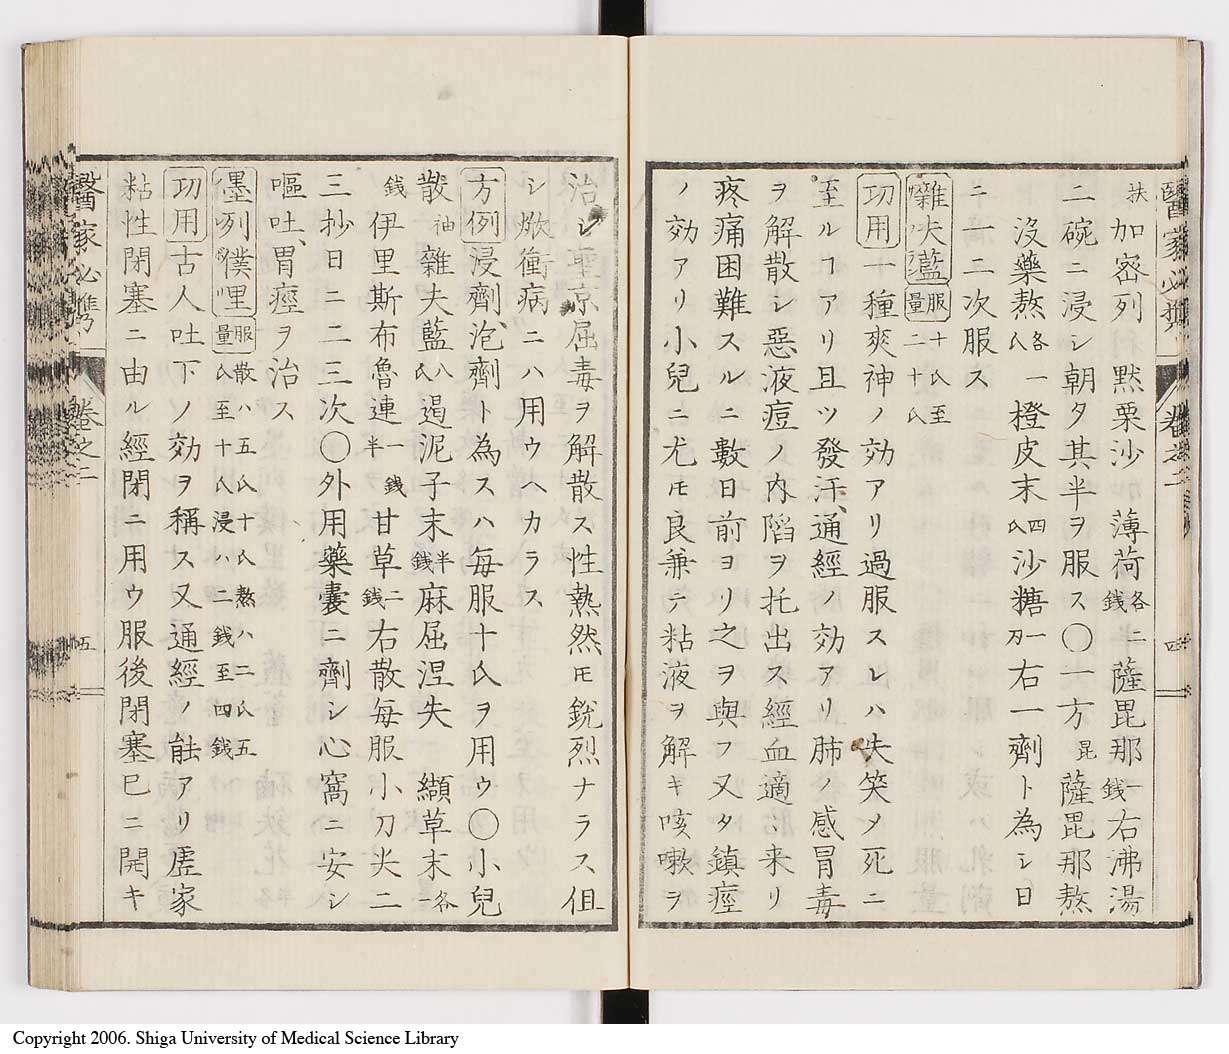 醫家必携 卷之二 四
扶加密列 黙栗沙 薄荷各二錢 薩毘那一錢 右沸湯
二碗ニ浸シ朝夕其半ヲ服ス〇一方昆薩毘那熬
沒藥熬各一氏 橙皮末四氏 沙糖一刃 右一劑ト為シ日
ニ一二次服ス
囃夫濫 服量 十氏至二十氏
功用 一種爽神ノ効アリ過服スレハ失笑メ死ニ
至ルコアリ且ツ發汗、通經ノ効アリ肺ノ感冒毒
ヲ解散シ惡液痘ノ内陷ヲ托出ス經血適ミ来リ
疼痛困難スルニ數日前ヨリ之ヲ與フ又タ鎮痙
ノ効アリ小兒ニ尤モ良兼テ粘液ヲ解キ咳嗽ヲ
治シ聖京屈毒ヲ解散ス性熱然モ銳烈ナラス伹
シ焮衝病ニハ用ウヘカラス
方例 浸劑、泡劑ト為スハ每服十氏ヲ用ウ〇小兒
散袖 雜夫藍八氏 遏泥子末半錢 麻屈涅失 纈草末各一
錢 伊里斯布魯連一錢半 甘草二錢 右散每服小刀尖二
三抄日二二三次〇外用藥囊ニ劑シ心窩ニ安シ
嘔吐、胃痙ヲ治ス
𠼝列僕哩 服量 散ハ五氏十氏熬ハ二氏五氏至十氏浸ハ二錢至四錢
功用 古人吐下ノ効ヲ稱ス又通經ノ能アリ虛家
粘性閉塞ニ由ル經閉ニ用ウ服後閉塞巳ニ開キ
醫家必携 卷之二 五
Copyright 2006. Shiga University of Medical Science Library